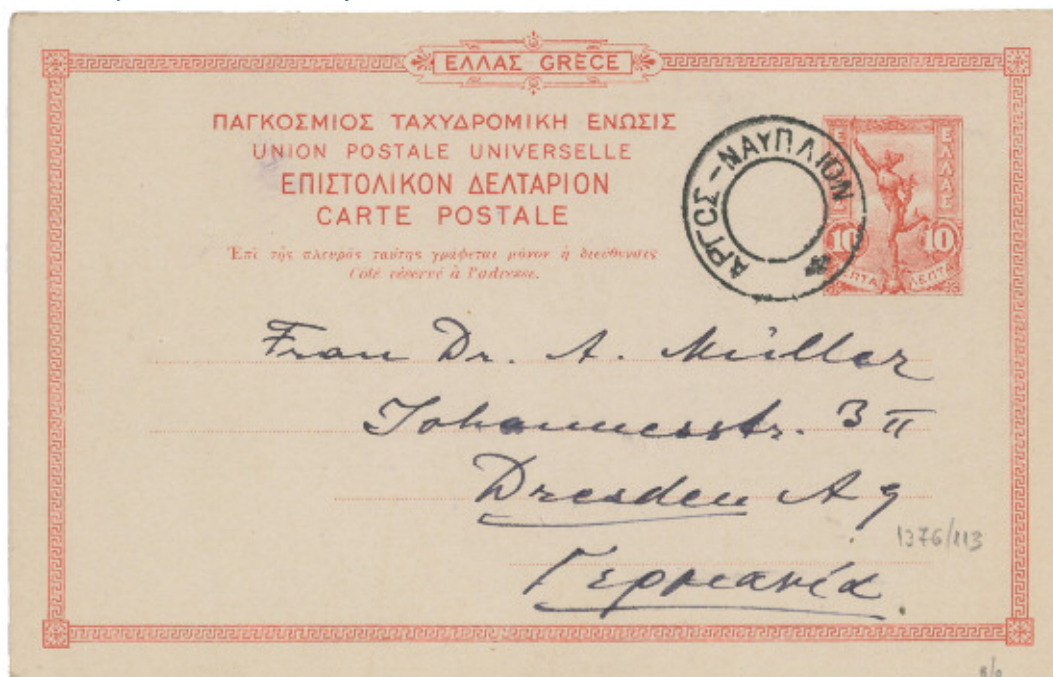 ΕΛΛΑΣ GRÈCE
ΠΑΓΚΟΣΜΙΟΣ ΤΑΧΥΔΡΟΜΙΚΗ ΕΝΩΣΙΣ
UNION POSTALE UNIVERSELLE
ΕΠΙΣΤΟΛΙΚΟΝ ΔΕΛΤΑΡΙΟΝ
CARTE POSTALE
Ἐπὶ τῆς πλευρᾶς ταύτης γράφεται μόνον ἡ διεύθυνσις
Côté réservé à l'adresse.
ΑΡΓΟΣ-ΝΑΥΠΛΙΟΝ
ΕΛΛΑΣ
10 10
ΛΕΠΤΑ ΛΕΠΤΑ
Frau Dr. A. Müller
Johannesstr. 3 II
Dresden A 9
Γερμανία
1376/113